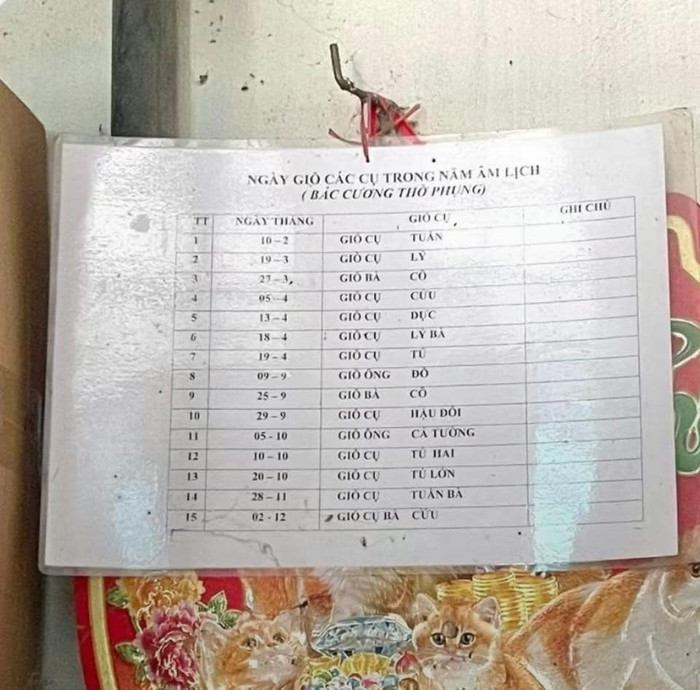 NGÀY GIỖ CÁC CỤ TRONG NĂM ÂM LỊCH
( BÁC CƯƠNG THỜ PHỤNG)
TT NGÀY THÁNG GIỖ CỤ GHI CHÚ
1 10 – 2 GIỖ CỤ TUẤN
2 19 – 3 GIỖ CỤ LÝ
3 27 – 3 GIỖ BÀ CÔ
4 05 – 4 GIỖ CỤ CỬU
5 13 – 4 GIỖ CỤ DỤC
6 18 – 4 GIỖ CỤ LÝ BÀ
7 19 – 4 GIỖ CỤ TÚ
8 09 – 9 GIỖ ÔNG ĐỒ
9 25 – 9 GIỖ BÀ CÔ
10 29 – 9 GIỖ CỤ HẬU ĐÔI
11 05 - 10 GIỖ ÔNG CẢ TƯỜNG
12 10 – 10 GIỖ CỤ TÚ HAI
13 20 – 10 GIỖ CỤ TÚ LỚN
14 28 – 11 GIỖ CỤ TUẤN BÀ
15 02 - 12 GIỖ CỤ BÀ CỬU